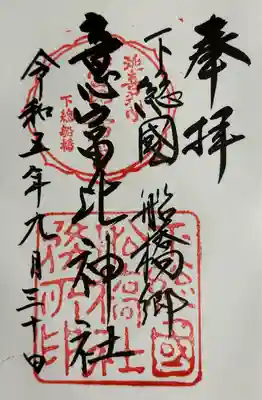 奉拝
下總國 船橋郷
意富比神社
令和五年九月三十日
下總船橋